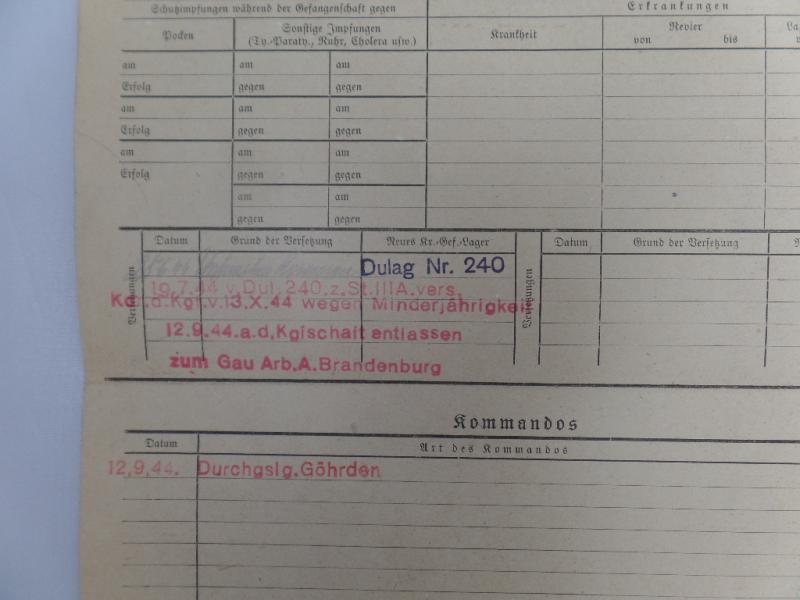 Schutzimpfungen während der Gefangenschaft gegen
Erkrankungen
Pocken
Sonstige Impfungen
(Ty.-Paraty., Ruhr, Cholera usw.)
Krankheit
Revier
von bis
am am am
Erfolg gegen gegen
am am am
Erfolg gegen gegen
am am am
Erfolg gegen gegen
am am
gegen gegen
Versetzungen
Datum Grund der Versetzung Neues Kr.-Gef.-Lager
Versetzungen
Datum Grund der Versetzung
Dulag Nr. 240
19.7.44 v. Dul. 240.z.St.IIIA.vers.
Kdt.d.Kgf.v.13.X.44 wegen Minderjährigkeit
12.9.44.a.d.Kgfschaft entlassen
zum Gau Arb.A.Brandenburg
Kommandos
Datum Art des Kommandos
12.9.44. Durchgslg.Göhrden